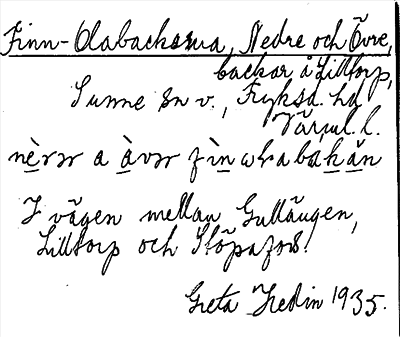 Finn-Olabackarna, Nedre och Övre,
backar å Lilltorp,
Sunne sn v., Fryksd. hd
Värml. l.
nèrər a àvər fìn
I vägen mellan Gullängen,
Lilltorp och Stöpafors.
Greta Hedin 1935.